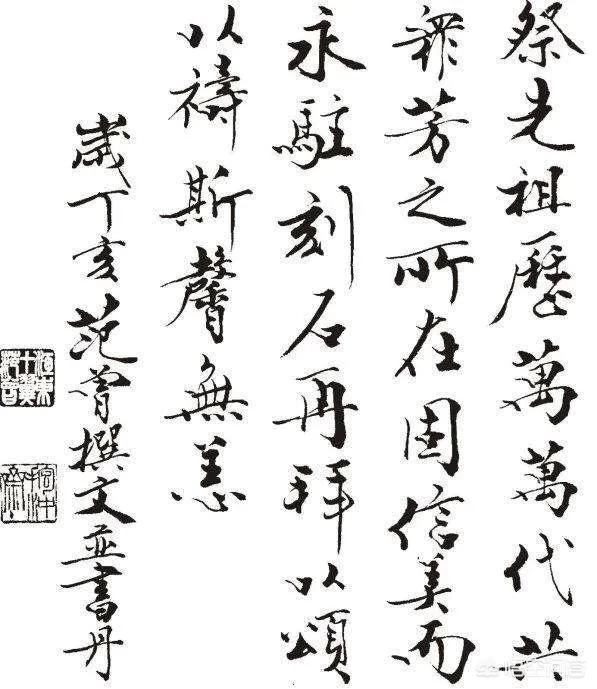 祭先祖歷萬萬代共
衆芳之所在固信美而
永駐刻石再拜以頌
以禱斯馨無恙
歲丁亥范曾撰文並書丹